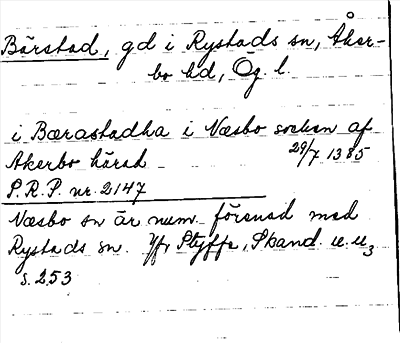 Bärstad, gd i Rystads sn, Åker-
bo hd, Ög. l.
i Bærastadha i Næsbo sochn af
Akerbo härad 29/7 1385
P.R.P. nr. 2147
Næsbo sn är num. förenad med
Rystads sn. Jfr Styffe, Skand. u. u3
s. 253